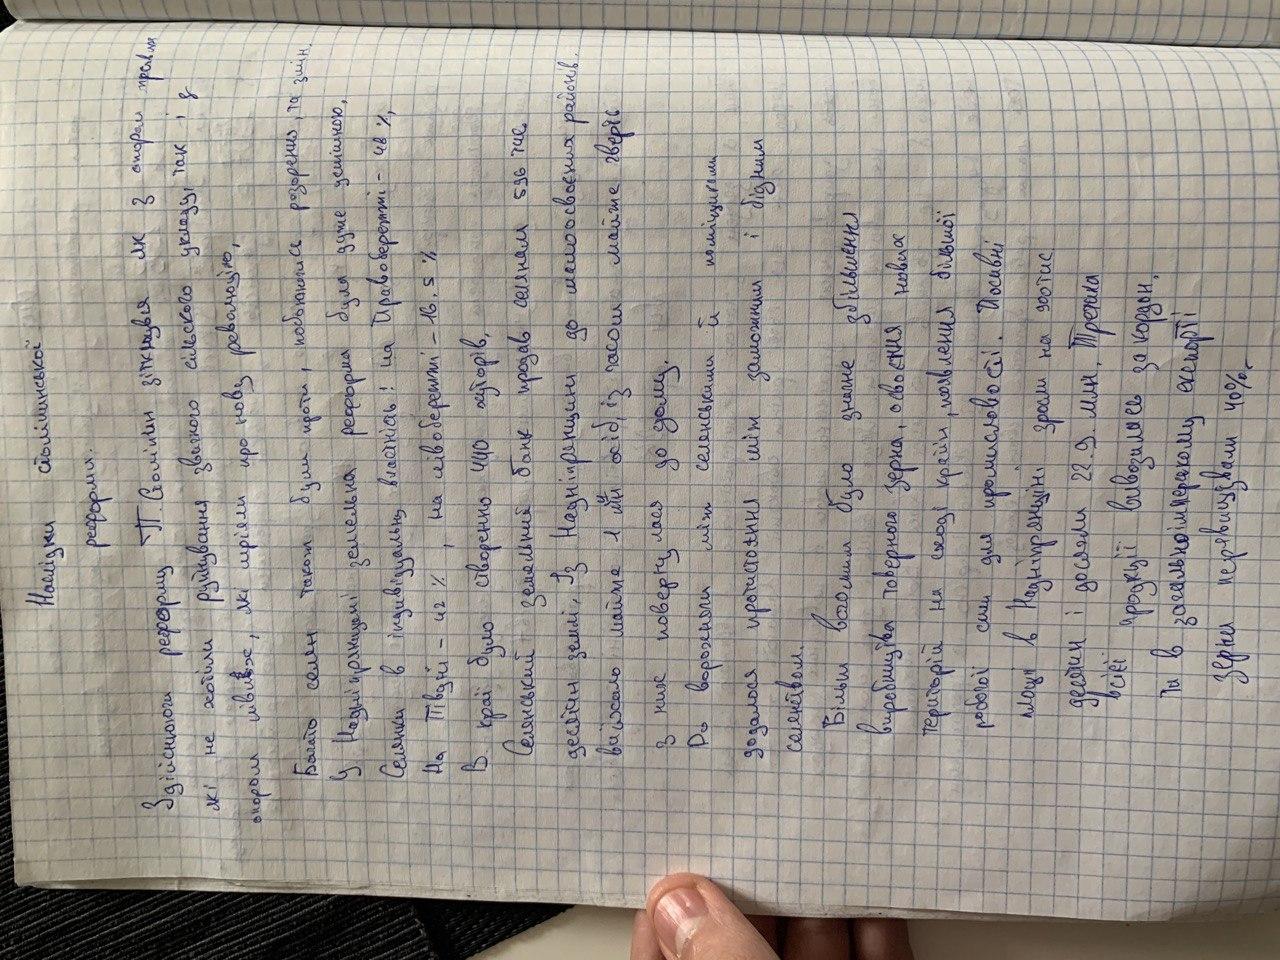 Наслідки столипінської
реформи.
Здійснюючи реформу П. Столипін зіткнувся як з опором правих
які не хотіли руйнування звичного сільского укладу, так і з
опором лівих, які мріяли про нову революцію,
Багато селян також були проти, побоюючись розорення, та змін
У Наддніпрянщині земельна реформа була дуже успішною,
Селянки в індивідуальну власність! на Правобережжі - 48 %,
На Півдні - 42 % , на лівобережжі - 16,5 %
В краї було створенно 440 хуторів,
Селянський земельний банк продав селянам 536 тис.
десятин землі, Із Наддніпрянщини до малоосвоєних районів.
виїхало майже 1 млн осіб, із часом майже чверть
з них повернулася до дому.
До ворожнечі між селянськими й поміщиками
додалося протистояння між заможним і бідним
селянством.
Більш вагомим було значне збільшення
виробництва товарного зерна, освоєння нових
територій на сході країни, появлення більшої
робочої сили для промисловості. Посівні
площі в Наддніпрянщині зросли на 900тис
десятин і досягли 22.9. млн, Третина
всієї продукції вивозилась за кордон,
та в загальноімперському експорті
зерна перевищували 40%.